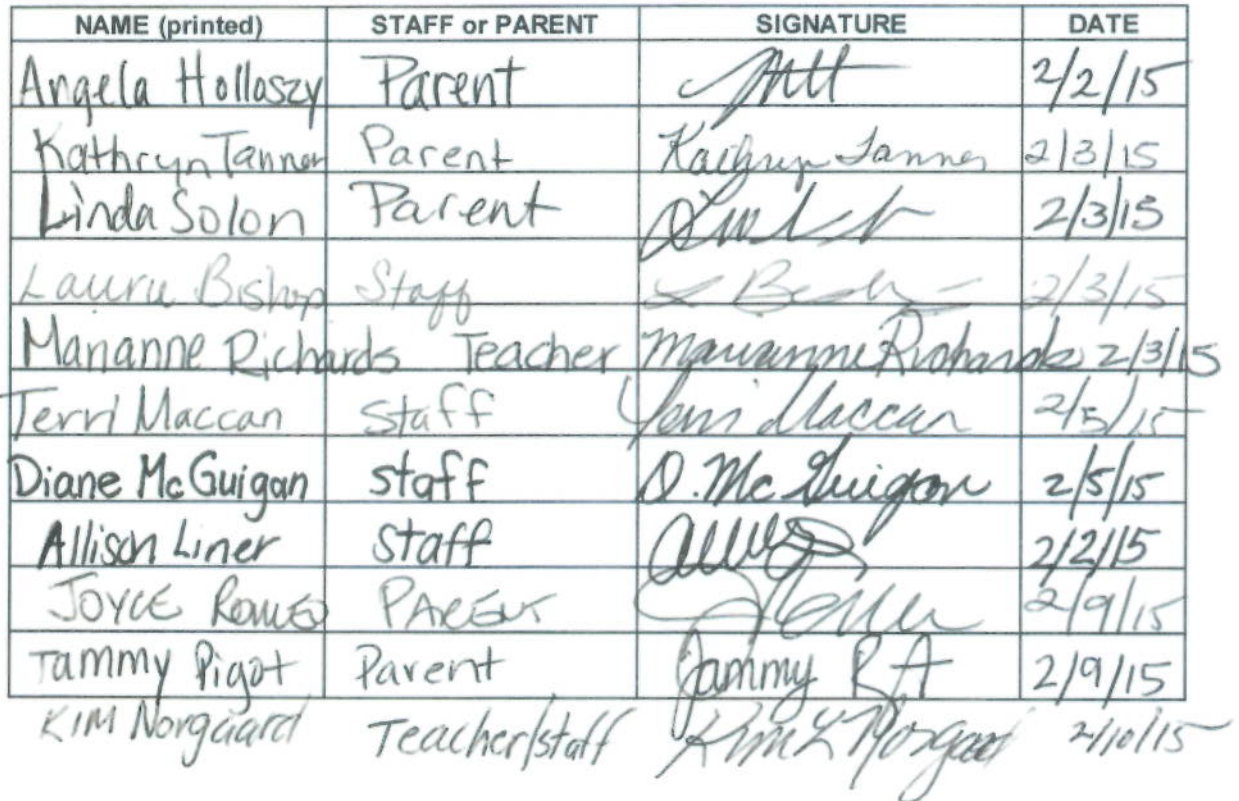 NAME (printed) STAFF or PARENT SIGNATURE DATE
Angela Hollaszy Parent 2/2/15
Kathryn Tanner Parent Kathryn Tanner 2/3/15
Linda Solon Parent 2/3/15
Laurie Bishop Staff 2/3/15
Marianne Richards Teacher Marianne Richards 2/3/15
Terri Maccan Staff Terri Maccan 2/5/15
Diane McGuigan Staff D. McGuigan 2/5/15
Allison Liner Staff 2/2/15
JOYCE ROMEO PARENT 2/9/15
Tammy Pigot Parent Tammy 2/9/15
KIM Norgaard Teacher/staff Kim L Norgaard 2/10/15